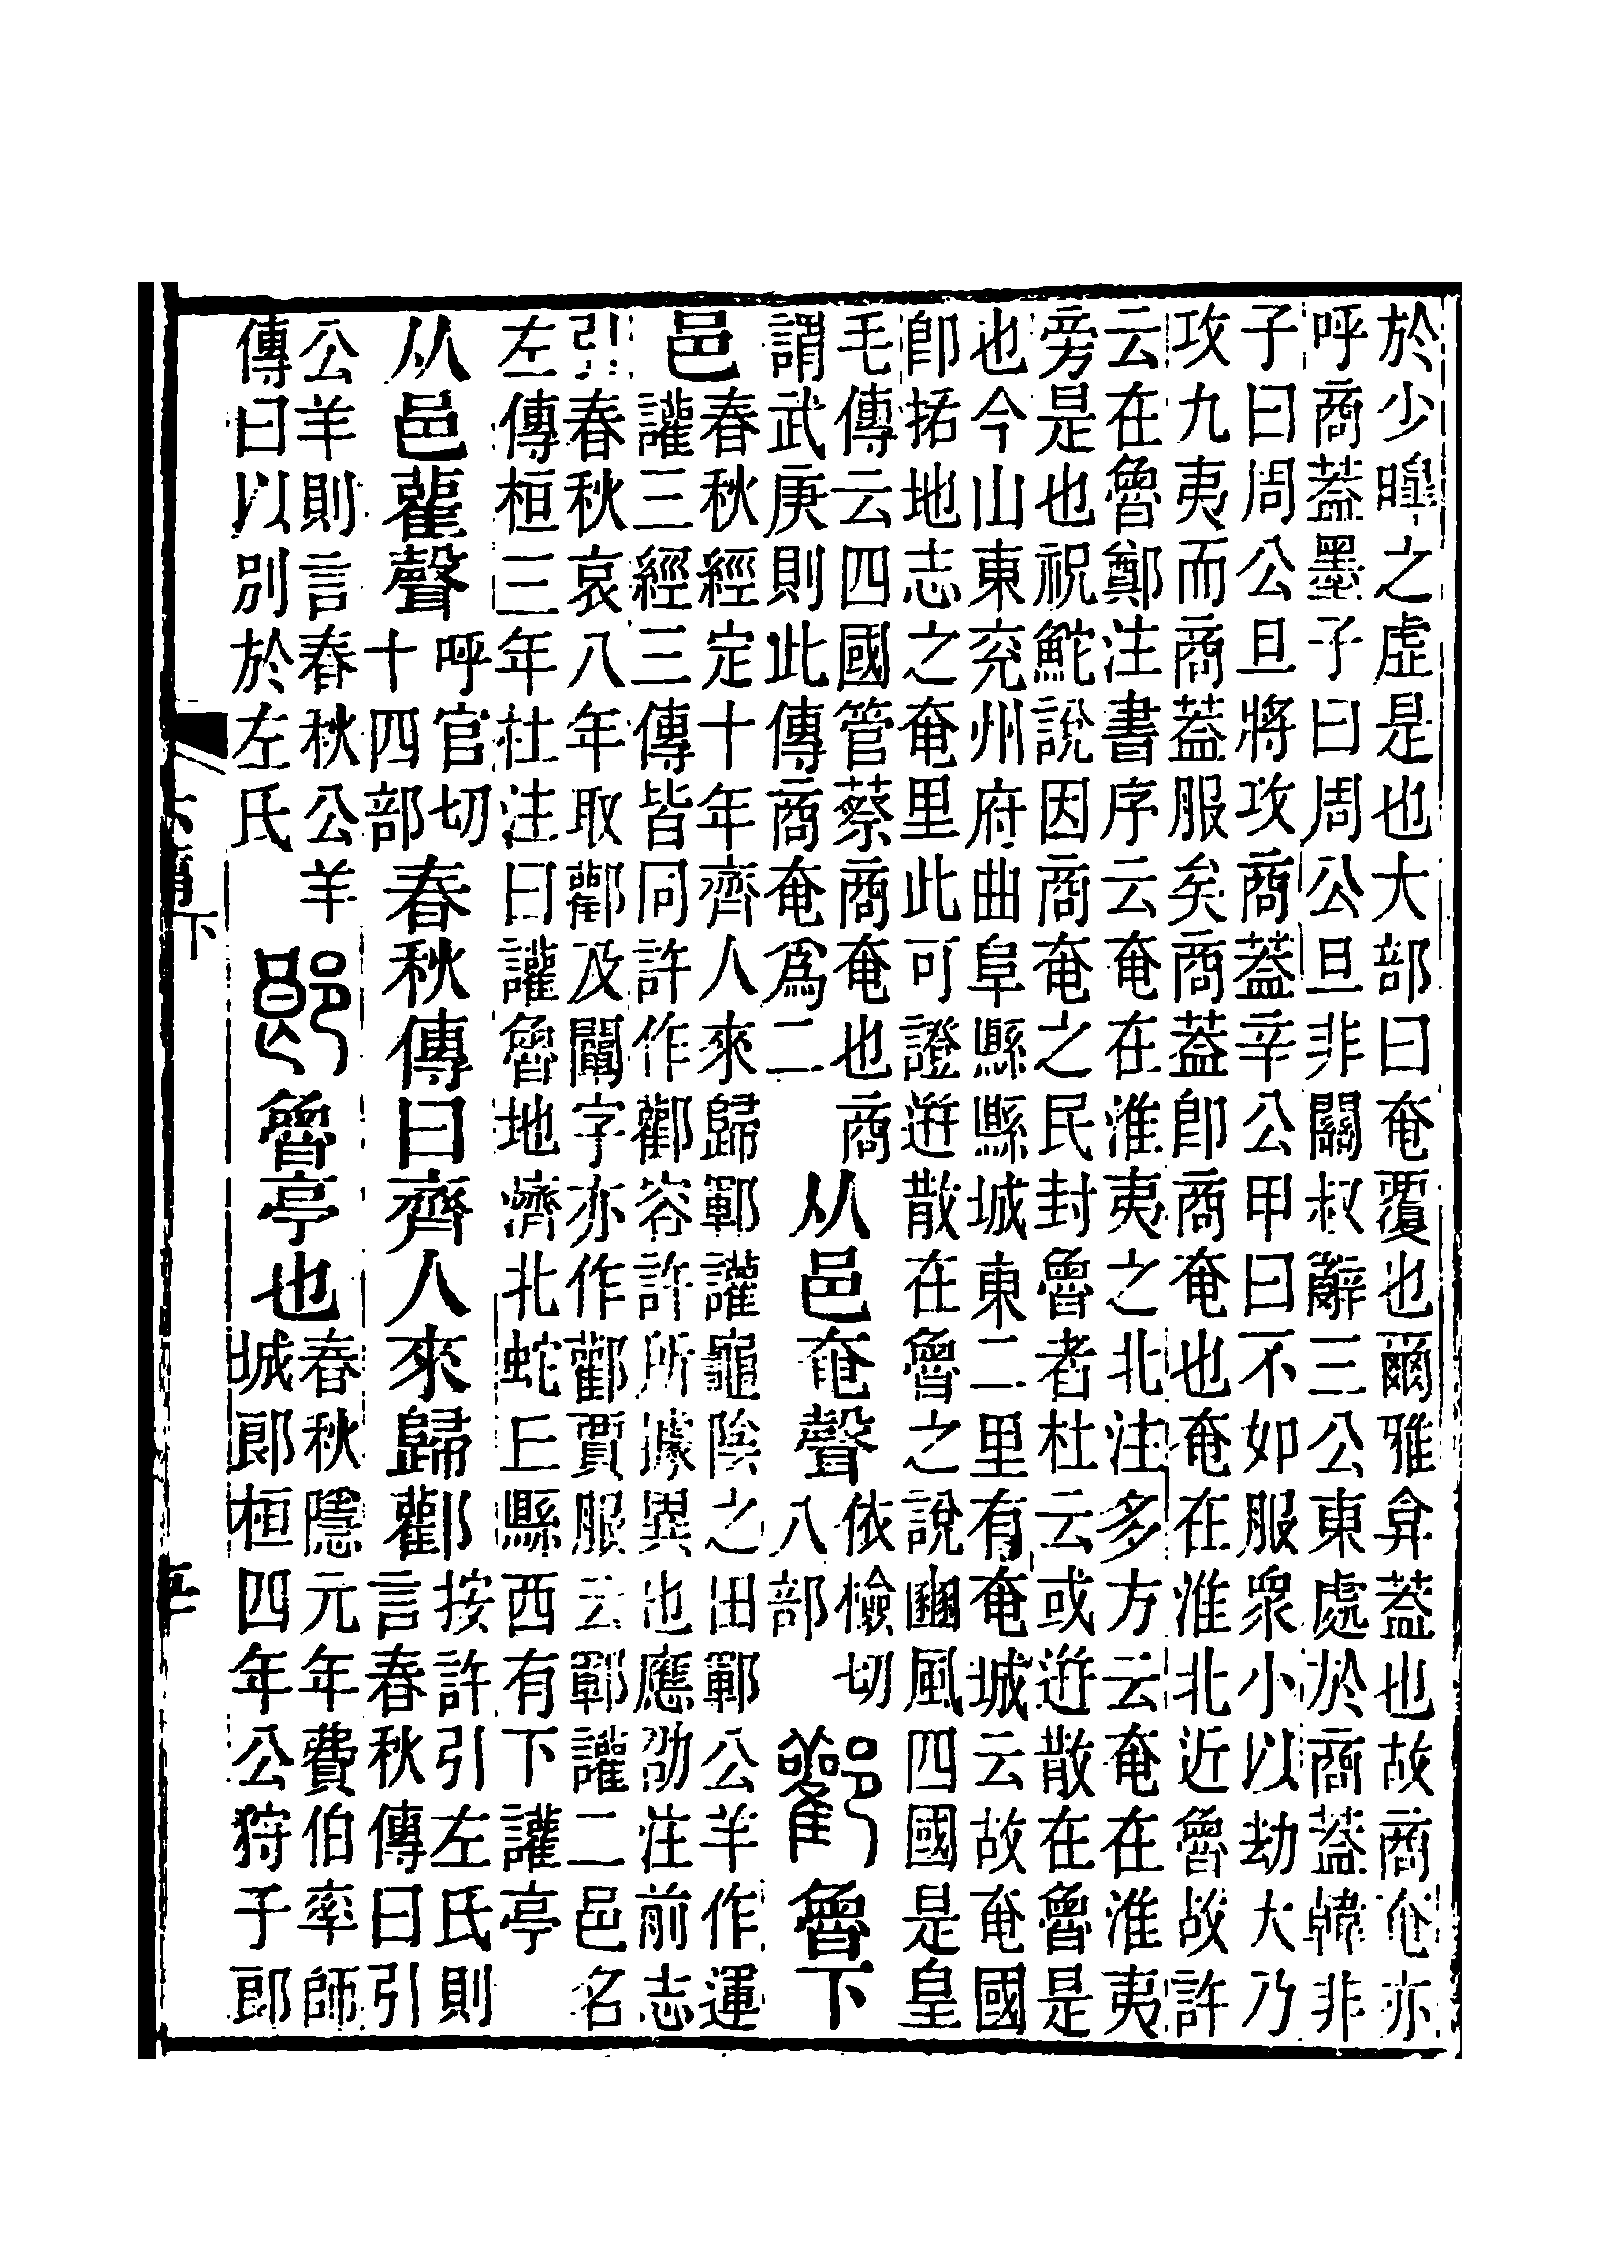 於少皥之虛是也大部曰奄覆也爾雅弇蓋也故商奄亦
呼商蓋墨子曰周公旦非關叔辭三公東處於商蓋韓非
子曰周公旦將攻商蓋辛公甲曰不如服眾小以劫大乃
攻九夷而商蓋服矣商蓋卽商奄也奄在淮北近魯故許
云在魯鄭注書序云奄在淮夷之北注多方云奄在淮夷
旁是也祝鮀說因商奄之民封魯者杜云或迸散在魯是
也今山東兖州府曲阜縣縣城東二里有奄城云故奄國
卽括地志之奄里此可證迸散在魯之說豳風四國是皇
毛傳云四國管蔡商奄也商
謂武庚則此傳商奄爲二
从邑奄聲
依檢切
八部
酄魯下
邑
春秋經定十年齊人來歸鄆讙龜陰之田鄆公羊作運
讙三經三傳皆同許作酄容許所據異也應劭注前志
引春秋哀八年取酄及闡字亦作酄賈服云鄆讙二邑名
左傳桓三年杜注曰讙魯地濟北蛇丘縣西有下讙亭
从邑雚聲
呼官切
十四部
春秋傳曰齊人來歸酄
按許引左氏則
言春秋傳曰引
公羊則言春秋公羊
傳曰以別於左氏
郎魯亭也
春秋隱元年費伯率師
城郎桓四年公狩于郎